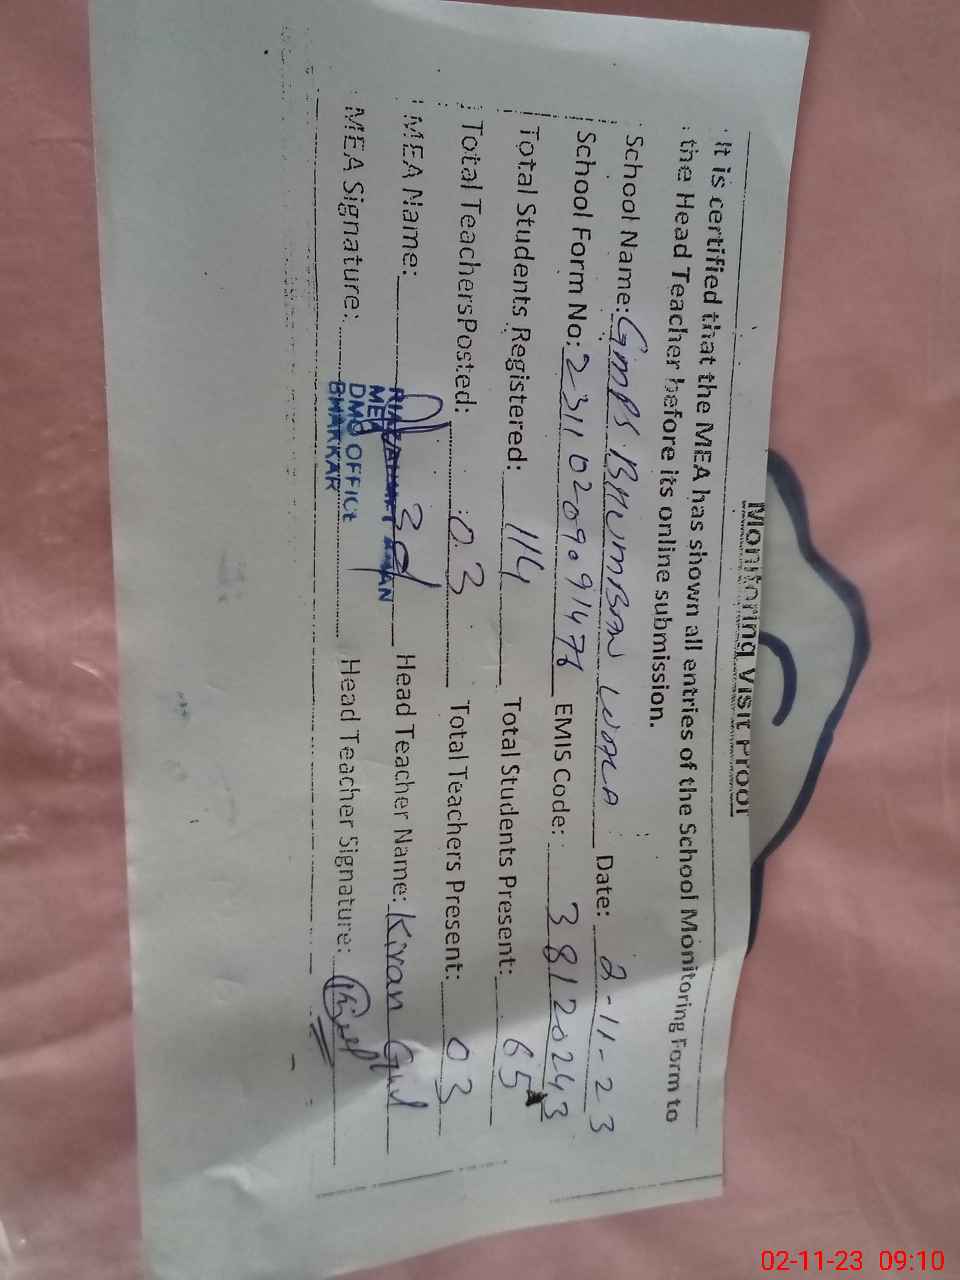 Monitoring Visit Proof
It is certified that the MEA has shown all entries of the School Monitoring Form to
the Head Teacher before its online submission.
School Name: GMPS BHUMBAN WALA Date: 2-11-23
School Form No: EMIS Code: 38120243
Total Students Registered: 114 Total Students Present: 65
Total TeachersPosted: 03 Total Teachers Present: 03
MEA Name: Head Teacher Name: Kiran Gul
MEA Signature: Head Teacher Signature:
MEA
DMO OFFICE
BHAKKAR
02-11-23 09:10